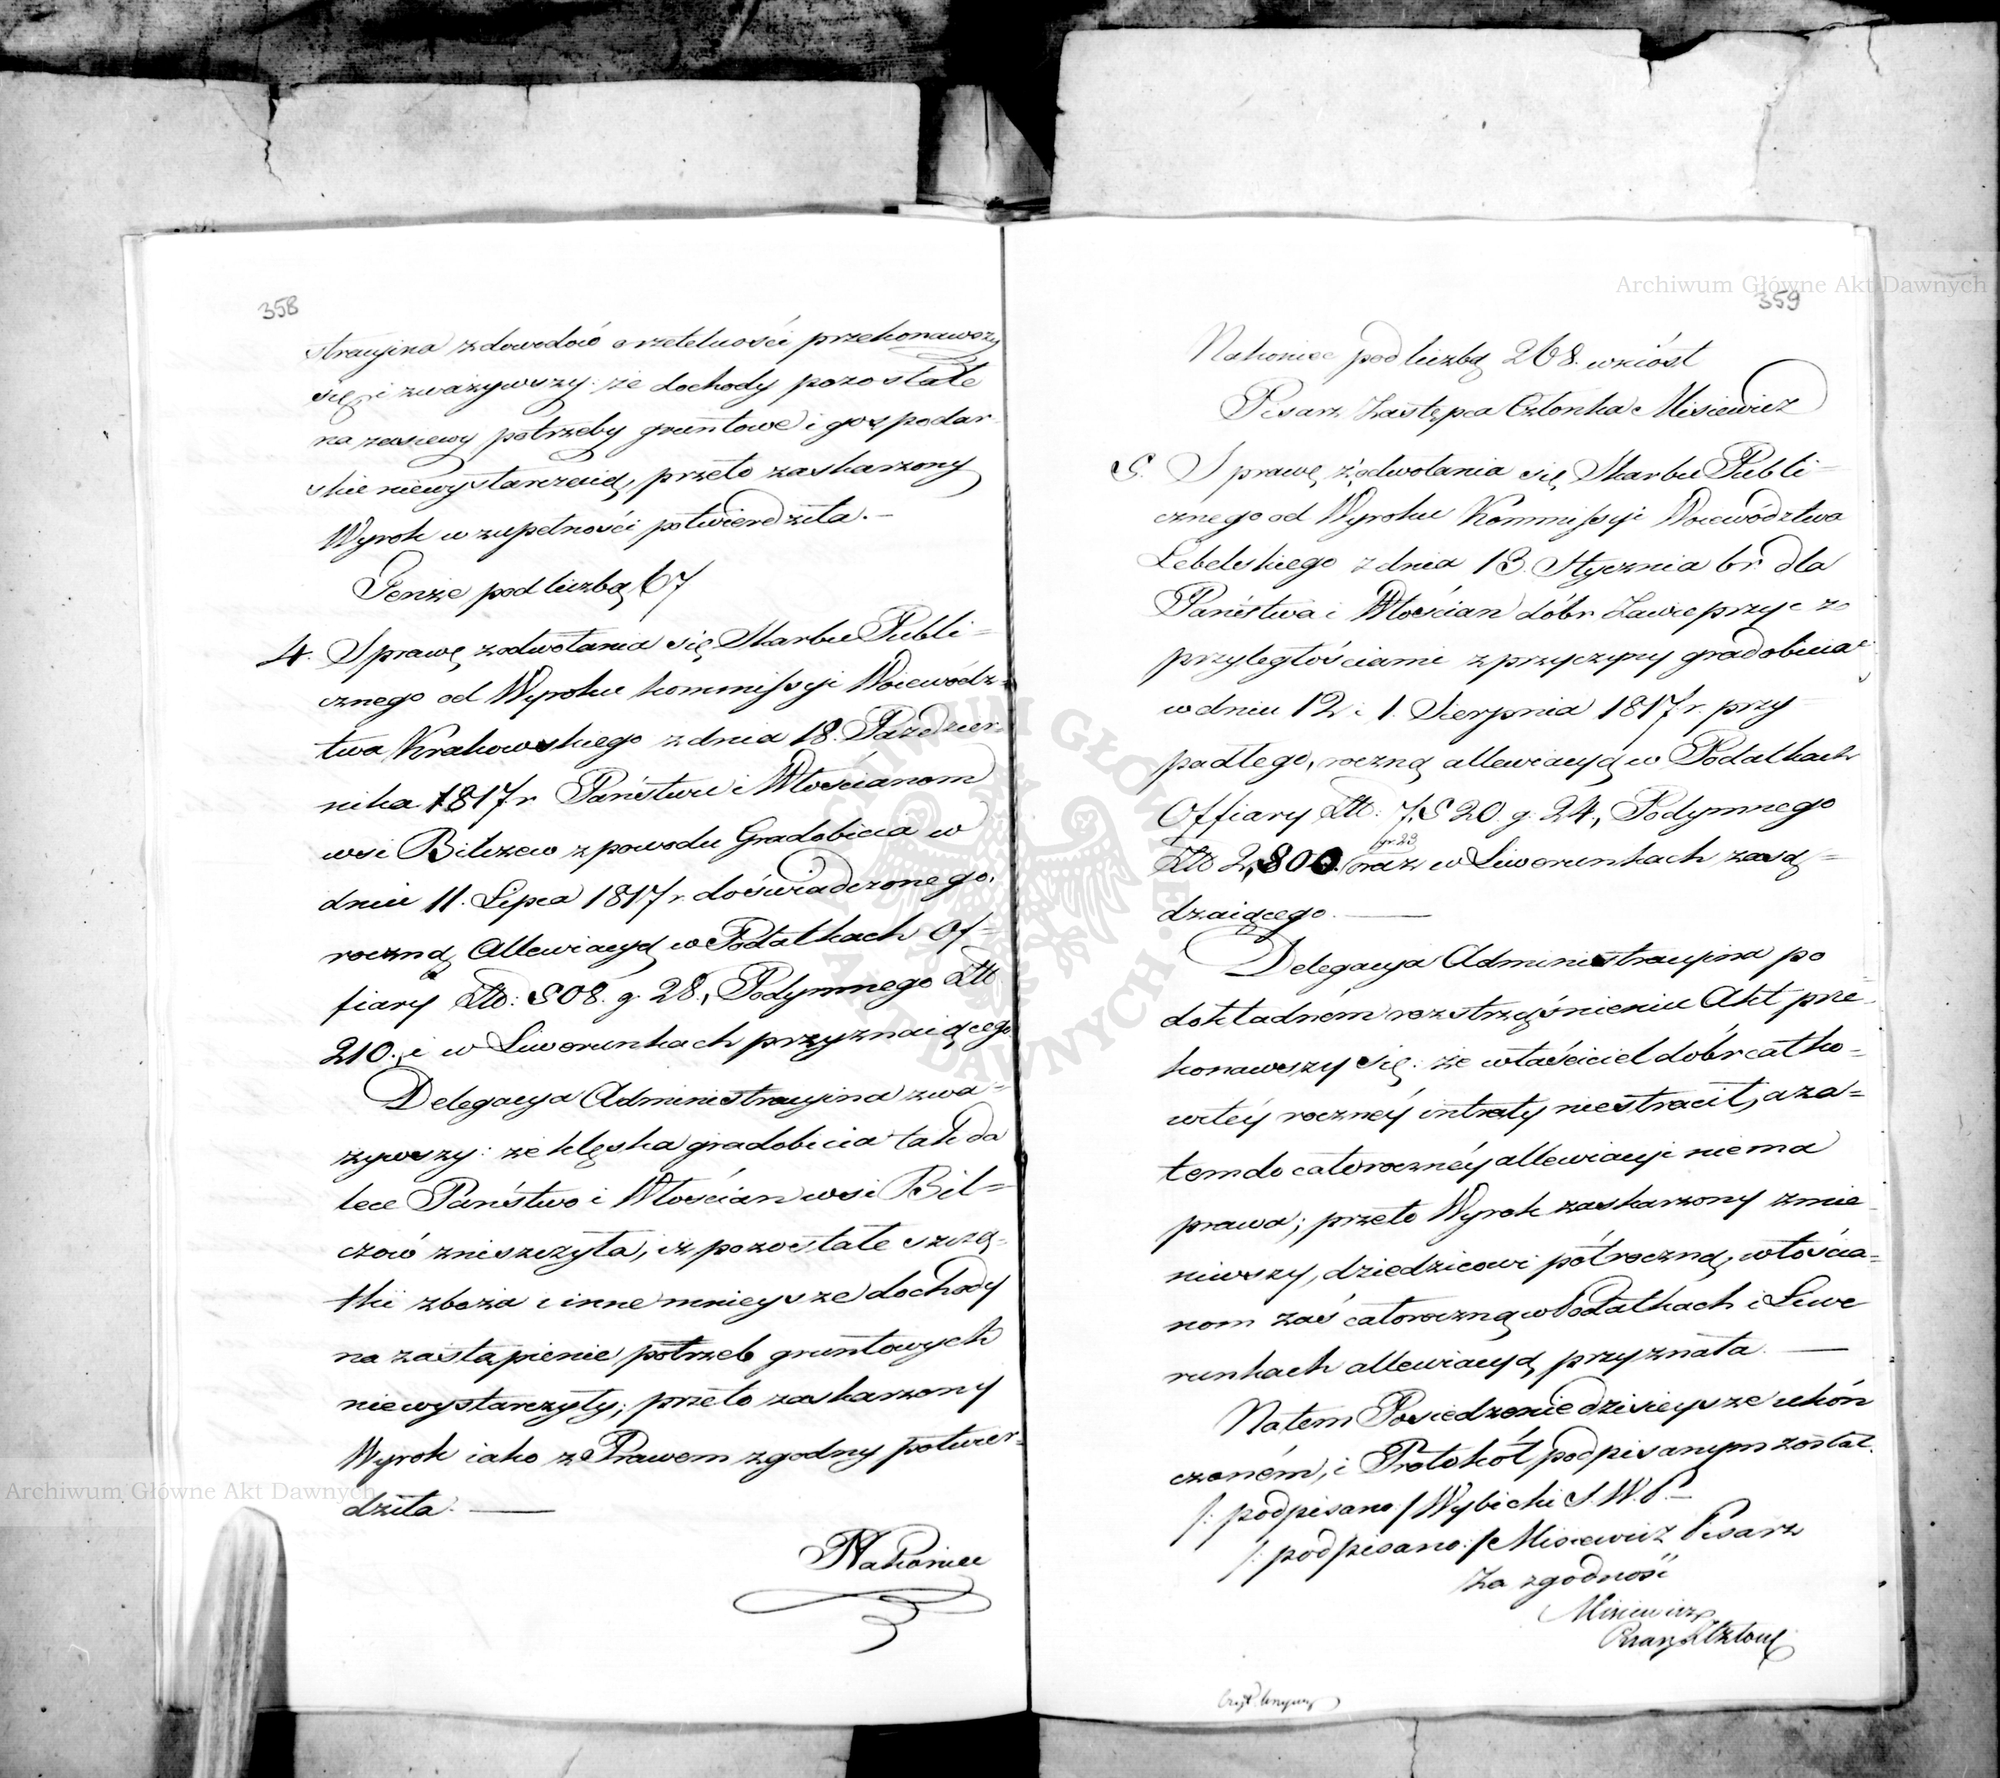 358
stracyina z dowodów o rzetelności przekonawszy
się i zważywszy: że dochody pozostałe
na zasiewy potrzeby gruntowe i gospodar
skie niewystarczaią, przeto zaskarżony
Wyrok w zupełności potwierdziła. –
Tenże pod liczbą 67
4. Sprawę z odwołania się Skarbu Publi=
cznego od Wyroku Kommissyi Woiewódz=
twa Krakowskiego z dnia 18. Paździer=
nika 1817 r Państwu i Włościanom
wsi Bilczew z powodu Gradobicia w
dniu 11. Lipca 1817 r. doświadczonego,
roczną Allewiacyą w Podatkach Of=
fiary Złł: 508. g. 28., Podymnego Złł
210., i w Liwerunkach przyznaiącego
Delegacya Administracyina zwa=
żywszy: że klęska gradobicia tak da
lece Państwo i Włościan wsi Bil=
czów zniszczyła, iż pozostałe szczą=
tki zboża i inne mnieysze dochody
na zastąpienie potrzeb gruntowych
niewystarczyły; przeto zaskarżony
Wyrok iako z Prawem zgodny potwier=
dziła. —
Nakoniec
359
Nakoniec pod liczbą 268. wniósł
Pisarz Zastępca Członka Misiewicz
5. Sprawę z odwołania się Skarbu Publi=
cznego od Wyroku Kommissyi Woiewództwa
Lubelskiego z dnia 13. Stycznia br. dla
Państwa i Włościan dóbr Zawieprzyc z
przyległościami z przyczyny gradobicia
w dniu 12 i 1. Sierpnia 1817 r. przy
padłego, roczną allewiacyą w Podatkach
Offiary Złł: 7,520 g. 24, Podymnego
gr. 23
Złł 2,800. oraz w Liwerunkach zasą=
dzaiącego. —
Delegacya Administracyina po
dokładném rozstrząśnieniu Akt prze=
konawszy się: że właściciel dóbr całko=
witéy rocznéy intraty niestracił, a za=
tem do całorocznéy allewiacyi niema
prawa; przeto Wyrok zaskarżony zmie
niwszy, dziedzicowi półroczną, włościa=
nom zaś całoroczną w Podatkach i Liwe
runkach allewiacyą przyznała. —
Na tem Posiedzenie dzisieysze ukoń
czoném, i Protokół podpisanym został.
/: podpisano :/ Wybicki S. W. P –
/: podpisano :/ Misiewicz Pisarz
Za zgodność
Misiewicz
Archiwum Główne Akt Dawnych
Archiwum Główne Akt Dawnych
ARCHIWUM GŁÓWNE AKT DAWNYCH